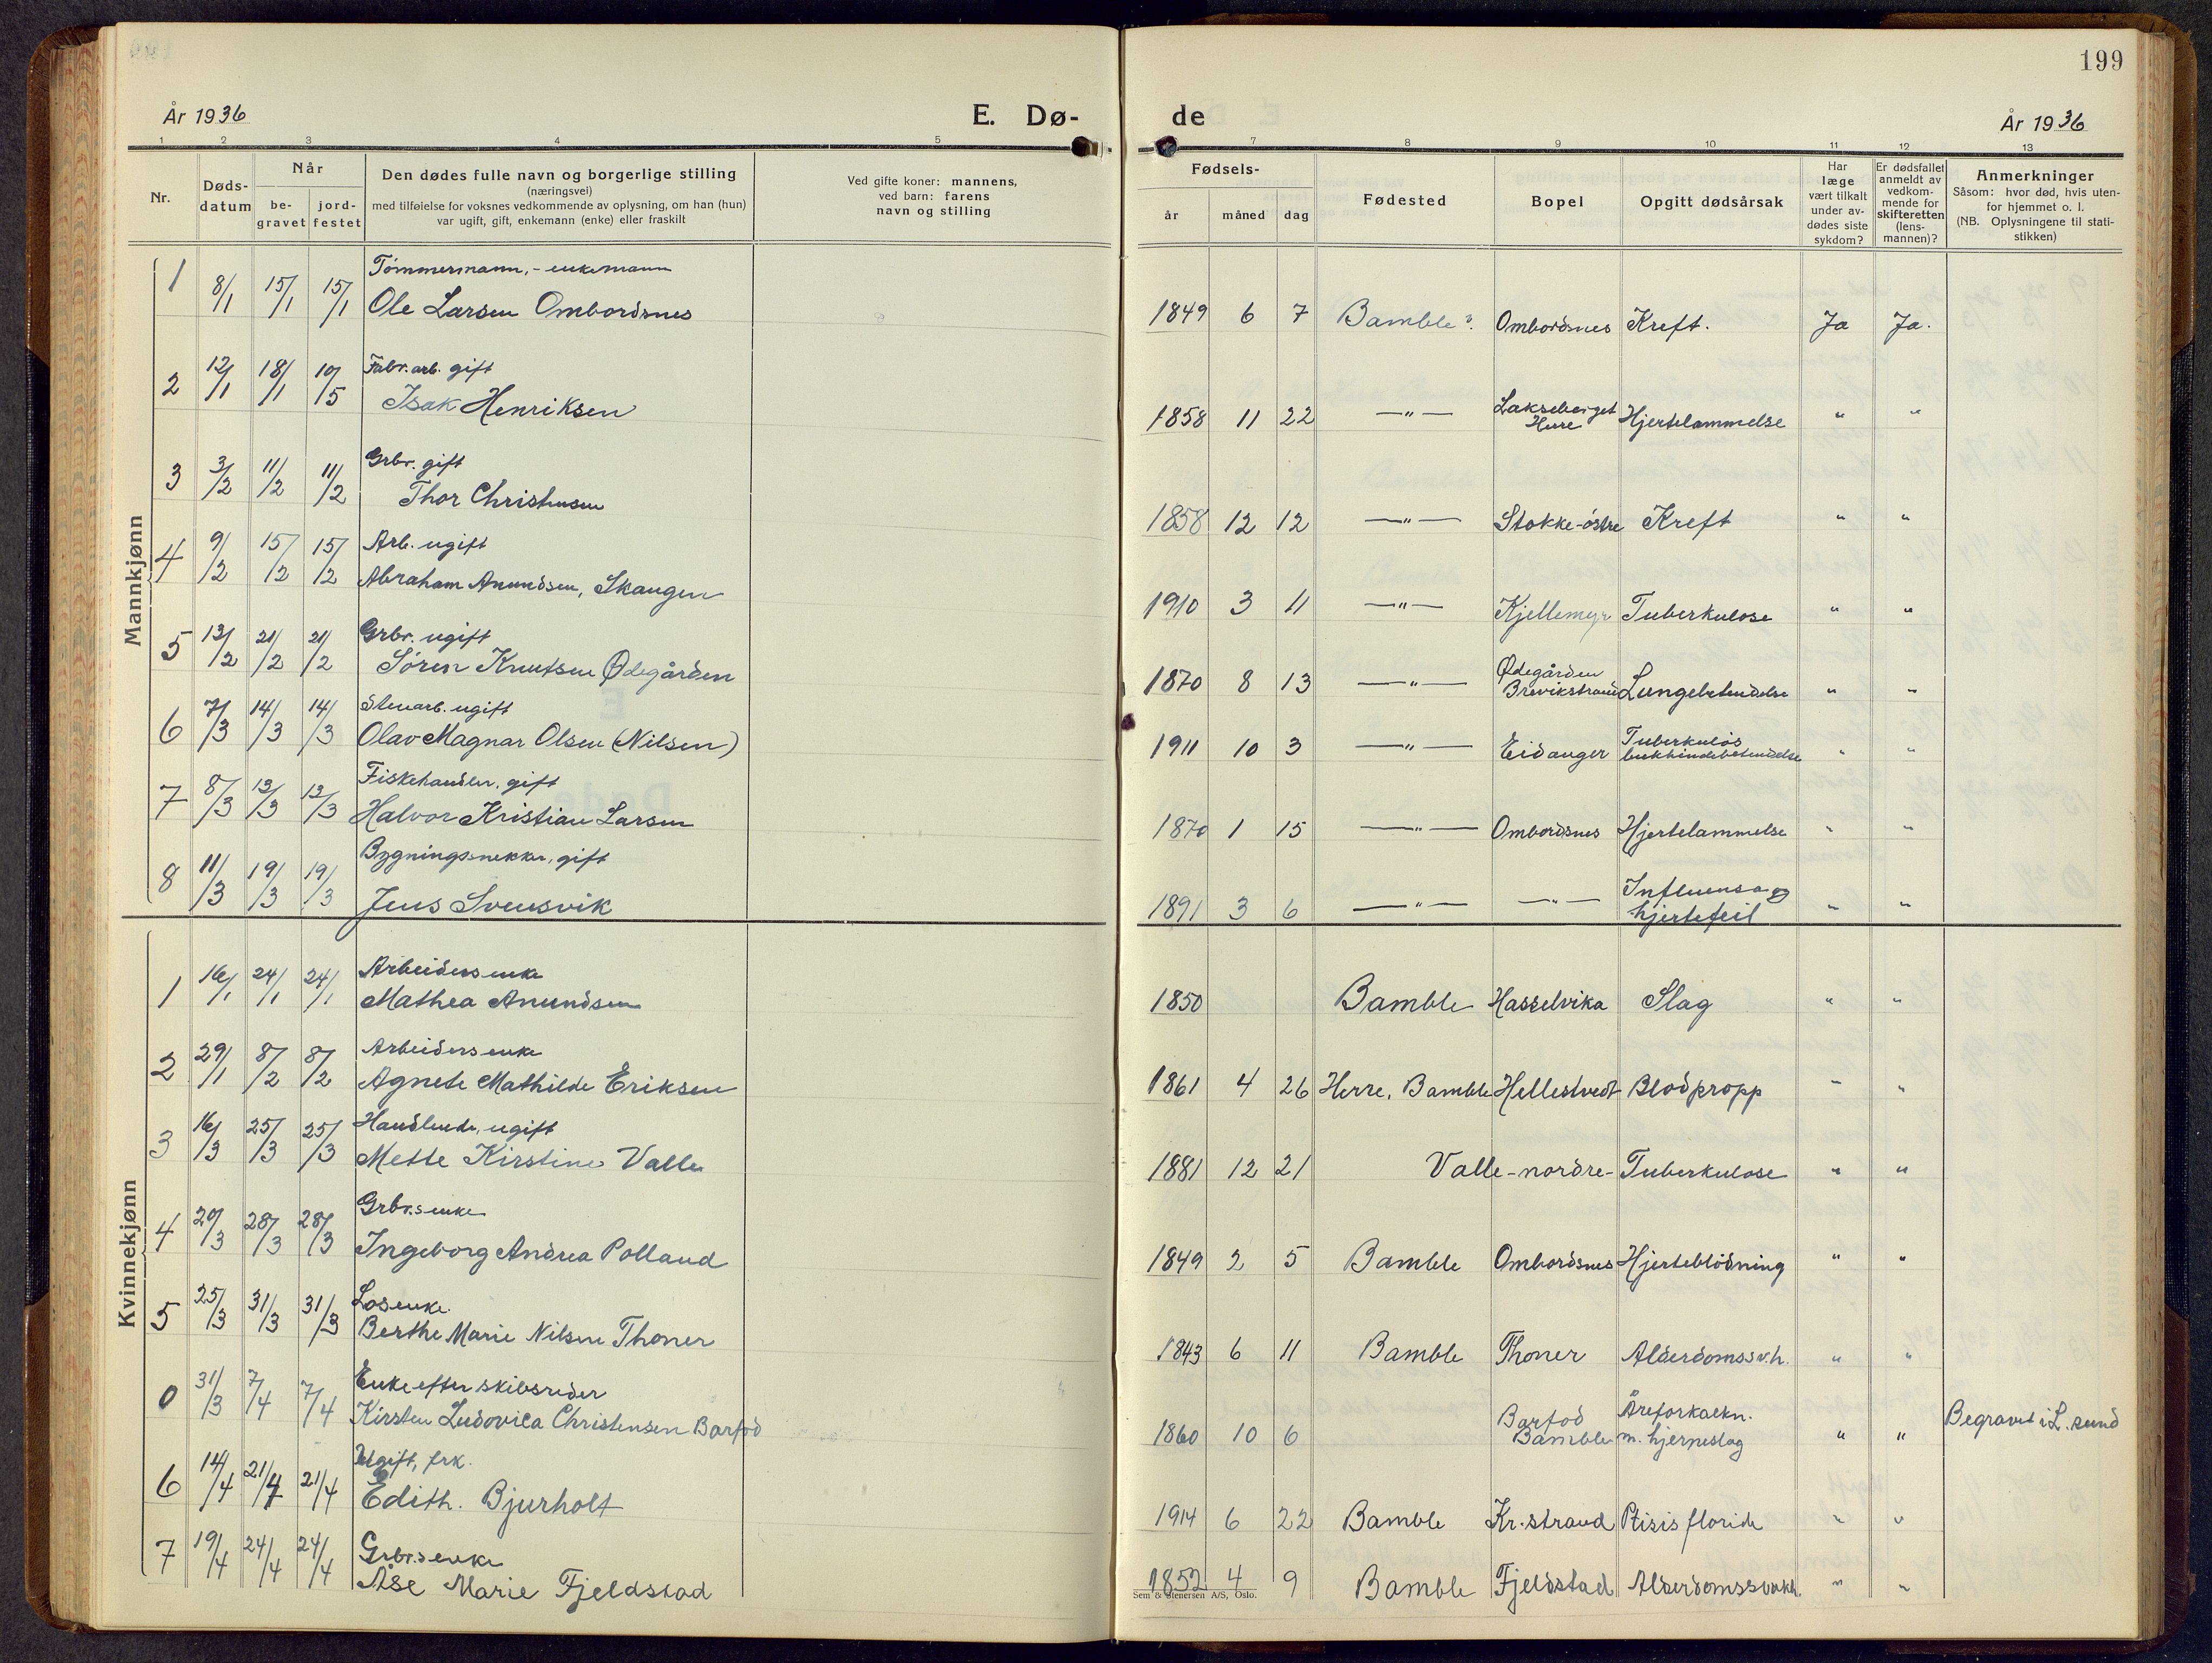 199
År 1936
E. Dø-
de
År 1936
1 2 3 4 5 7 8 9 10 11 12 13
Nr.
Døds-
datum
Når
be-
gravet
jord-
festet
Den dødes fulle navn og borgerlige stilling
(næringsvei)
med tilføielse for voksnes vedkommende av oplysning, om han (hun)
var ugift, gift, enkemann (enke) eller fraskilt
Ved gifte koner: mannens,
ved barn: farens
navn og stilling
Fødsels-
år måned dag
Fødested
Bopel
Opgitt dødsårsak
Har
læge
vært tilkalt
under av-
dødes siste
sykdom?
Er dødsfallet
anmeldt av
vedkom-
mende for
skifteretten
(lens-
mannen)?
Anmerkninger
Såsom: hvor død, hvis uten-
for hjemmet o. l.
(NB. Oplysningene til stati-
stikken)
Mannkjønn
Tømmermann, - enkemann
1 8/1 15/1 15/1 Ole Larsen Ombordsnes 1849 6 7 Bamble? Ombordsnes Kreft. Ja Ja.
Fabr. arb. gift
2 12/1 18/1 10/5 Isak Henriksen 1858 11 22 —"— Lakseberget
Herre Hjertelammelse " "
Grbr. gift
3 3/2 11/2 11/2 Thor Christensen 1858 12 12 —"— Stokke-østre Kreft " "
Arb. ugift
4 9/2 15/2 15/2 Abraham Anundsen, Skaugen 1910 3 11 —"— Kjellemyr Tuberkulose " "
Grbr. ugift
5 13/2 21/2 21/2 Søren Knutsen Ødegården 1870 8 13 —"— Ødegården
Brevikstrand Lungebetendelse " "
Stenarb. ugift
6 7/3 14/3 14/3 Olav Magnar Olsen (Nilsen) 1911 10 3 —"— Eidanger Tuberkuløs
bukhindebetendelse " "
Fiskehandler, gift
7 8/3 13/3 13/3 Halvor Kristian Larsen 1870 1 15 —"— Ombordsnes Hjertelammelse " "
Bygningssnekker, gift
8 11/3 19/3 19/3 Jens Svensvik 1891 3 6 —"— —"— Influensa og
hjertefeil " "
Kvinnekjønn
Arbeidersenke
1 16/1 24/1 24/1 Mathea Anundsen 1850 Bamble Hasselvika Slag " "
Arbeidersenke
2 29/1 8/2 8/2 Agnete Mathilde Eriksen 1861 4 26 Herre, Bamble Hellestvedt Blodpropp " "
Handlende, ugift
3 16/3 25/3 25/3 Mette Kirstine Valle 1881 12 21 Valle-nordre- Tuberkulose " "
Grbr.s enke
4 20/3 28/3 28/3 Ingeborg Andrea Polland 1849 2 5 Bamble Ombordsnes Hjerteblødning " "
Losenke.
5 25/3 31/3 31/3 Berthe Marie Nilsen Thoner 1843 6 11 Bamble Thoner Alderdomssv.h. " "
Enke efter skibsreder
0 31/3 7/4 7/4 Kirsten Ludovica Christensen Barfod 1860 10 6 Barfod
Bamble Åreforkalkn.
m. hjerneslag " " Begravet i L. sund
Ugift, frk.
6 14/4 21/4 21/4 Edith. Bjurholt 1914 6 22 Bamble Kr.strand Ptisis floride " "
Grbr.s enke
7 19/4 24/4 24/4 Åse Marie Fjeldstad 1852 4 9 Bamble Fjeldstad Alderdomssvakh. " "
Sem & Stenersen A/S, Oslo.